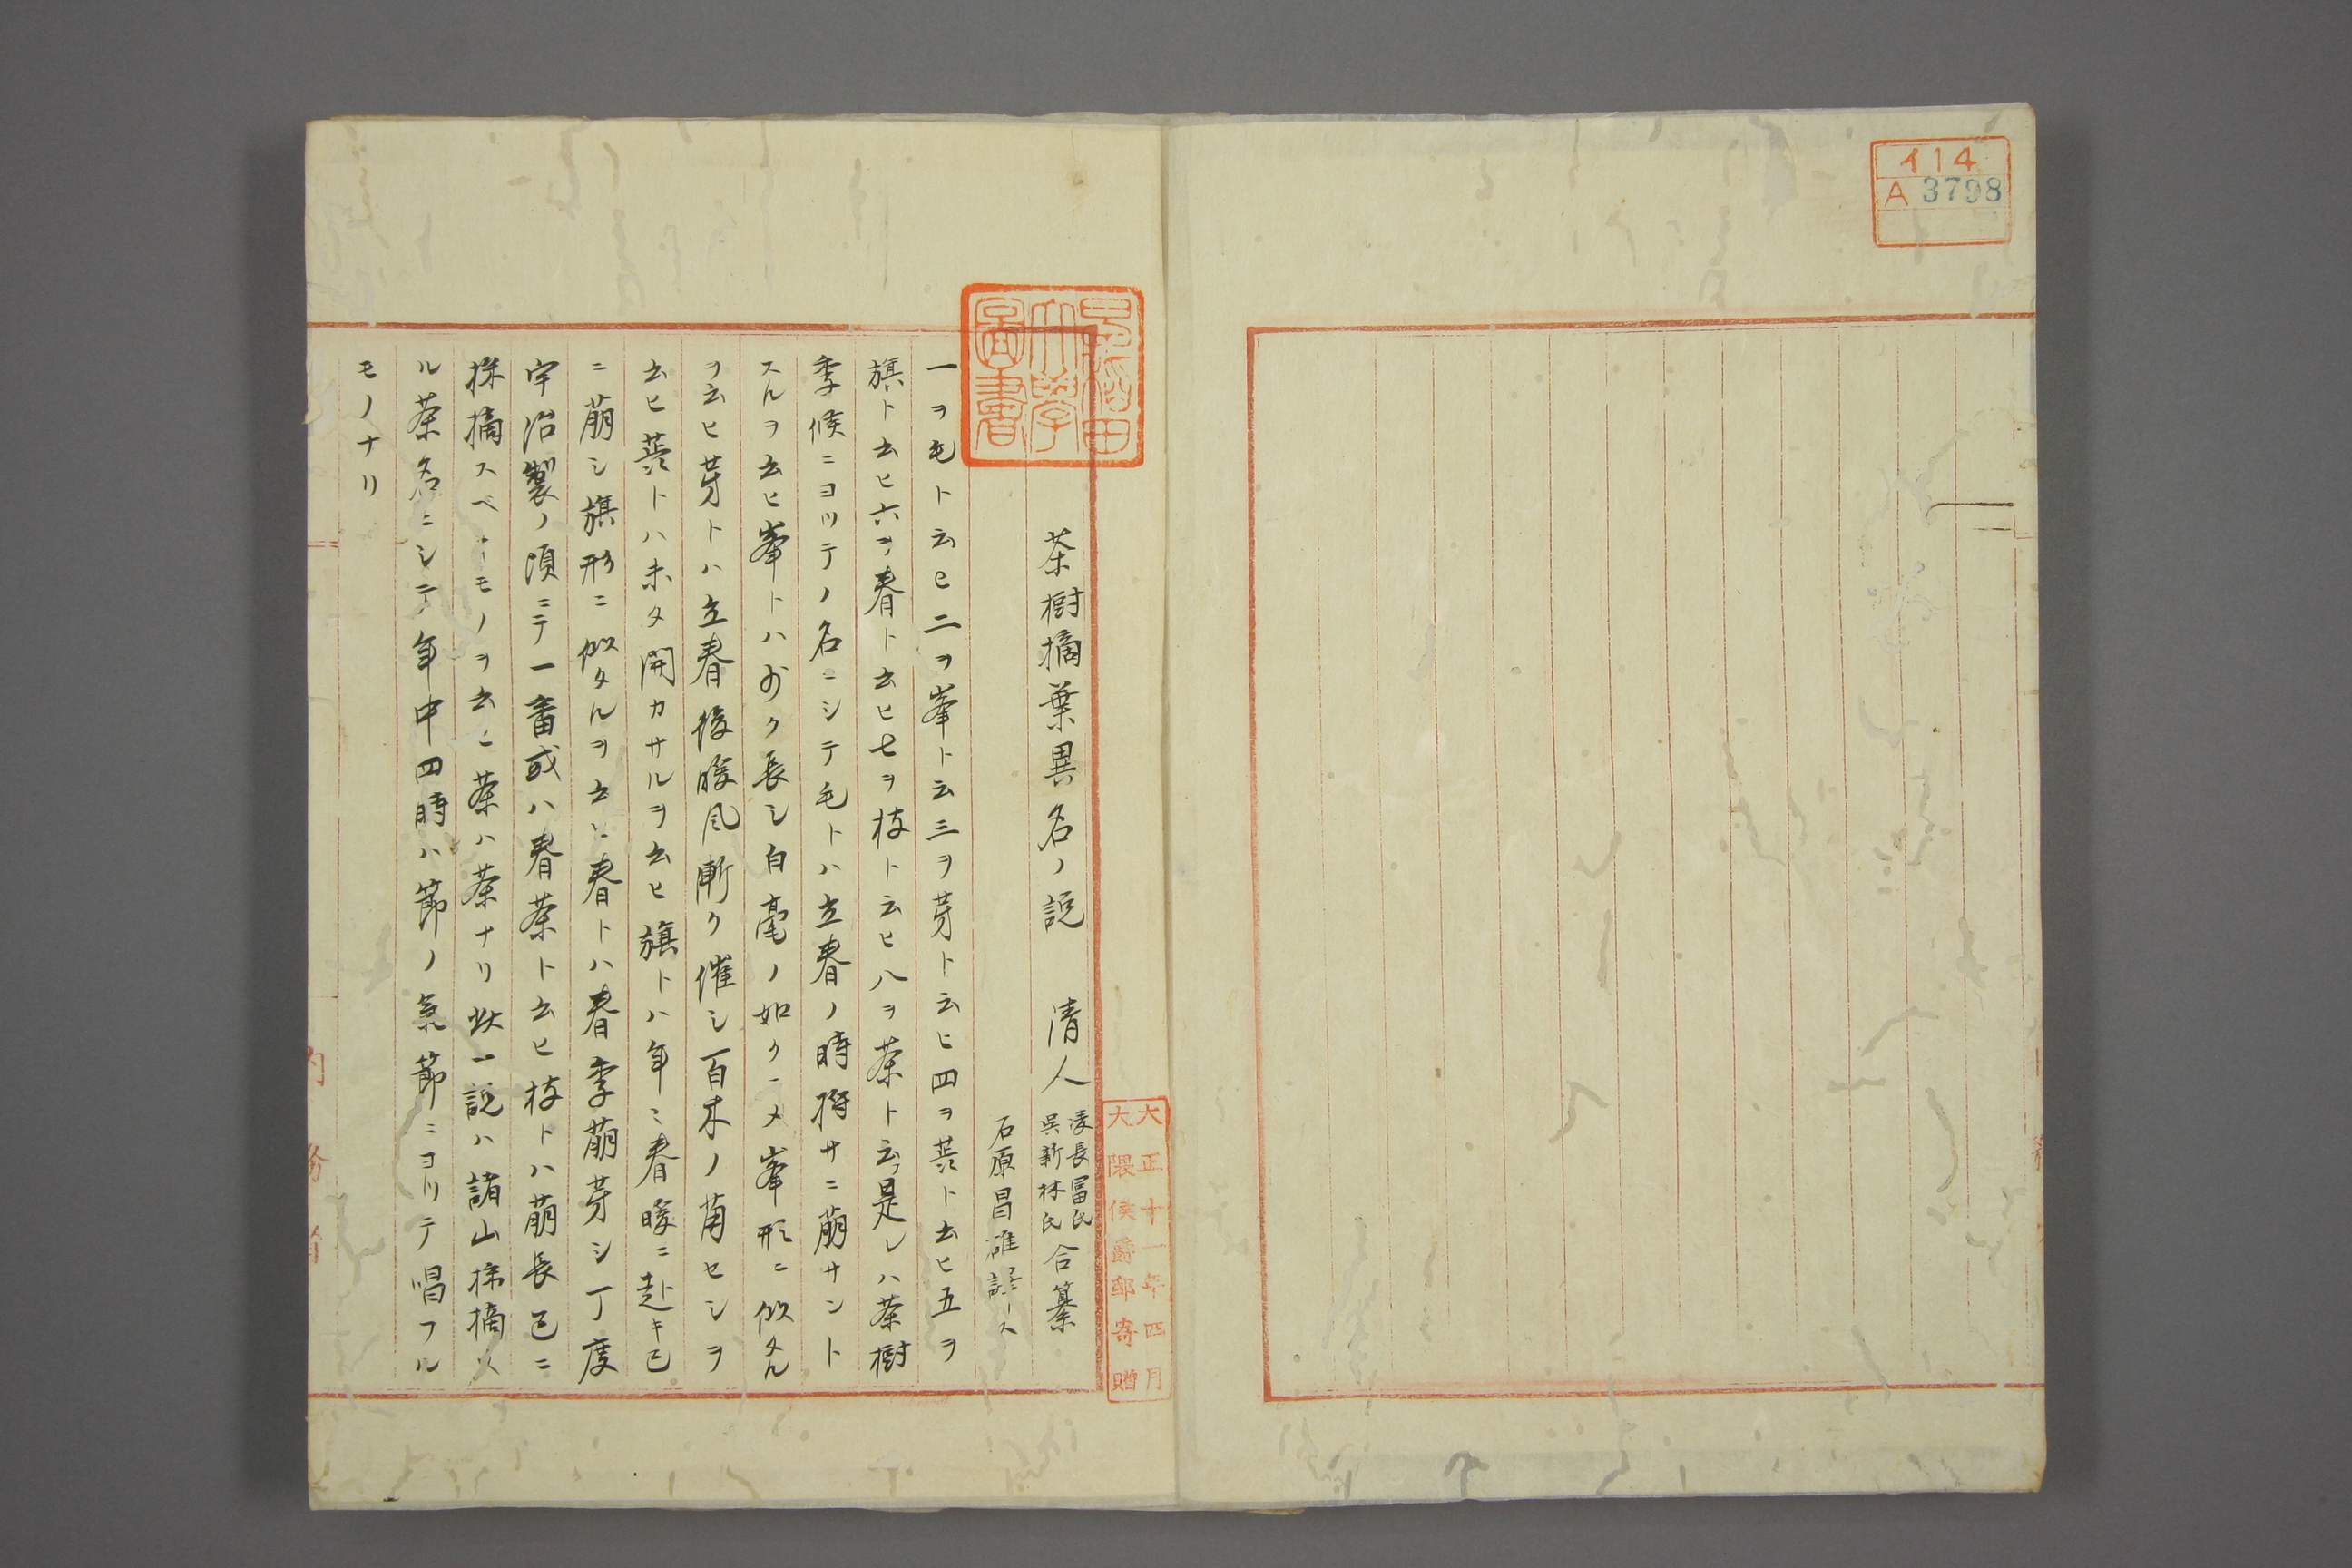 イ14
A 3798
早稲田
大學
圖書
大正十一年四月
大隈侯爵邸寄贈
茶樹摘葉異名ノ説 清人 凌長冨氏 呉新林氏 合纂
石原昌雄訳ス
一ヲ毛ト云ヒ二ヲ峯ト云三ヲ芽ト云ヒ四ヲ蕋ト云ヒ五ヲ
旗ト云ヒ六ヲ春ト云ヒ七ヲ枝ト云ヒ八ヲ茶ト云フ是レハ茶樹
季候ニヨツテノ名ニシテ毛トハ立春ノ時將サニ萠サント
スルヲ云ヒ峯トハ少ク長シ白毫ノ如クニメ峯形ニ似タル
ヲ云ヒ芽トハ立春後暖風漸ク催シ百木ノ萠セシヲ
云ヒ蕋トハ未タ開カサルヲ云ヒ旗トハ年ミ春暖ニ赴キ已
ニ萠シ旗形ニ似タルヲ云ヒ春トハ春季萠芽シ丁度
宇治製ノ頃ニテ一番或ハ春茶ト云ヒ枝トハ萠長已ニ
採摘スベキモノヲ云ヒ茶ハ茶ナリ此一説ハ諸山採摘ス
ル茶名ニシテ年中四時ハ節ノ氣節ニヨリテ唱フル
モノナリ
内務省